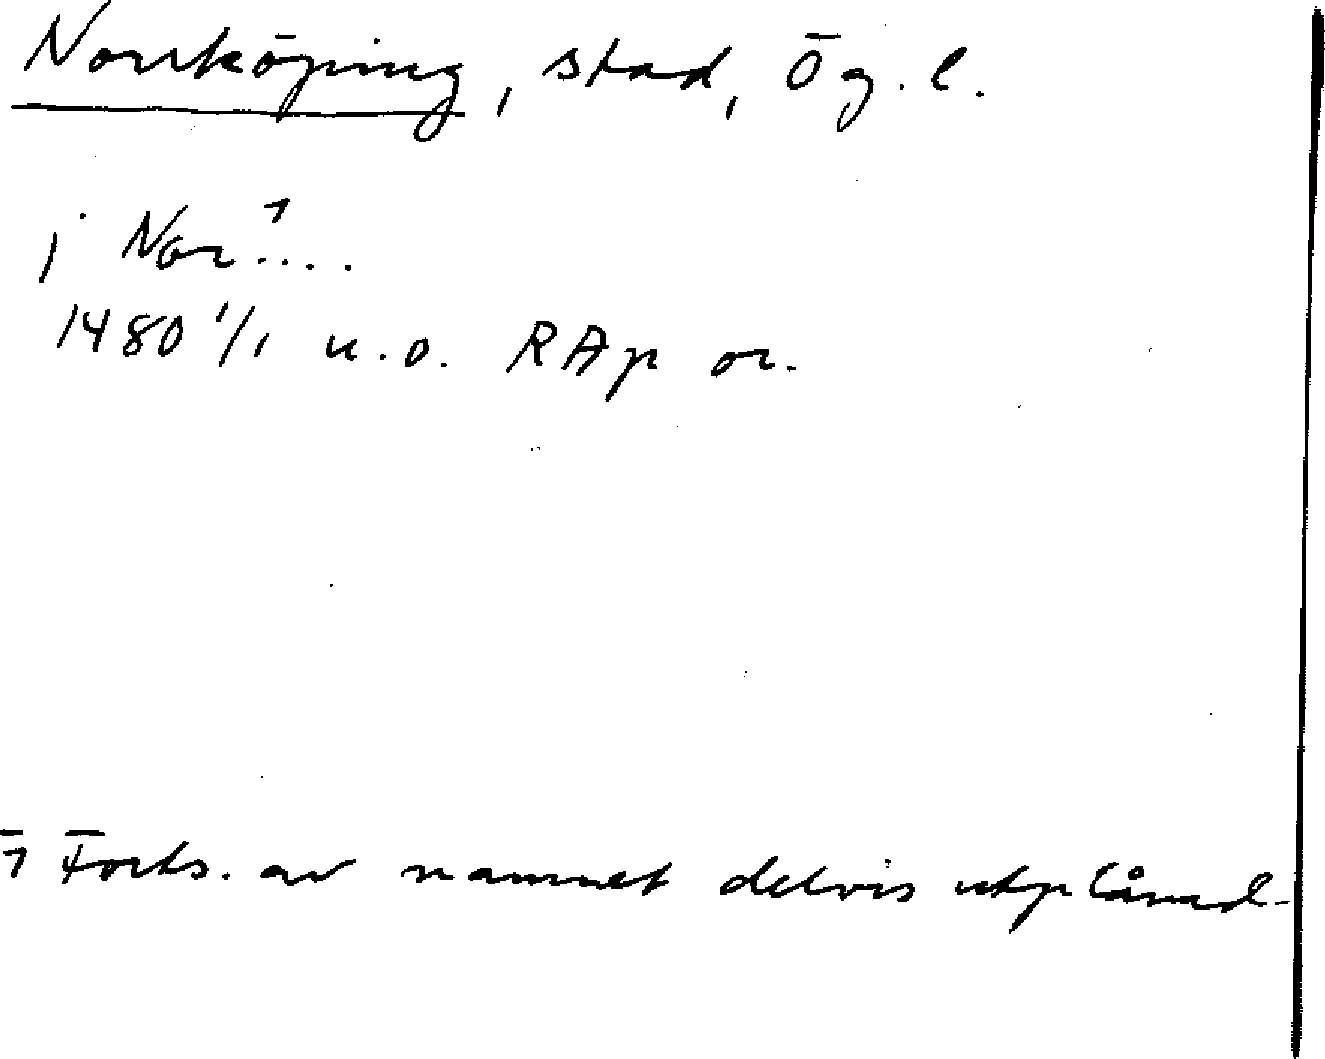 Norrköping, stad, Ög. l.
j Nor¹....
1480 1/1 u.o. RAp or.
1 Forts. av namnet delvis utplånad.